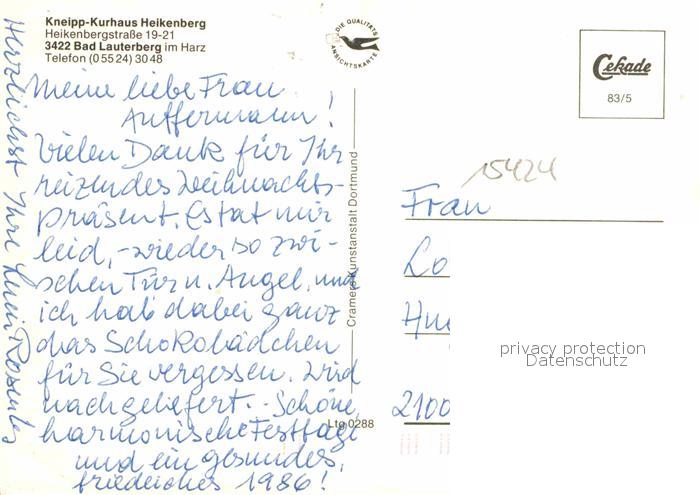 Kneipp-Kurhaus Heikenberg
Heikenbergstraße 19-21
3422 Bad Lauterberg im Harz
Telefon (0 55 24) 30 48
DIE QUALITÄTS
ANSICHTSKARTE
Cekade
83/5
Meine liebe Frau
Auffermann!
Vielen Dank für Ihr
reizendes Weihnachts-
präsent. Es tat mir
leid, - wieder so zwi-
schen Tür u. Angel, und
ich hab dabei ganz
das Schokolädchen
für Sie vergessen. Wird
nachgeliefert. - Schöne,
harmonische Festtage
und ein gesundes,
friedliches 1986!
Herzlichst Ihre
Cramers Kunstanstalt Dortmund
Ltg 0288
15424
Frau
Lo
2100
privacy protection
Datenschutz